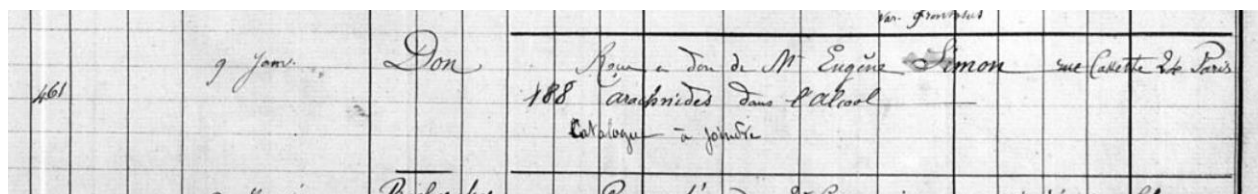 Var. frontalis
461 9 Janv. Don Reçu en don de Mr Eugène Simon rue Cassette 24 Paris
188 arachnides dans l'alcool
Catalogue à joindre